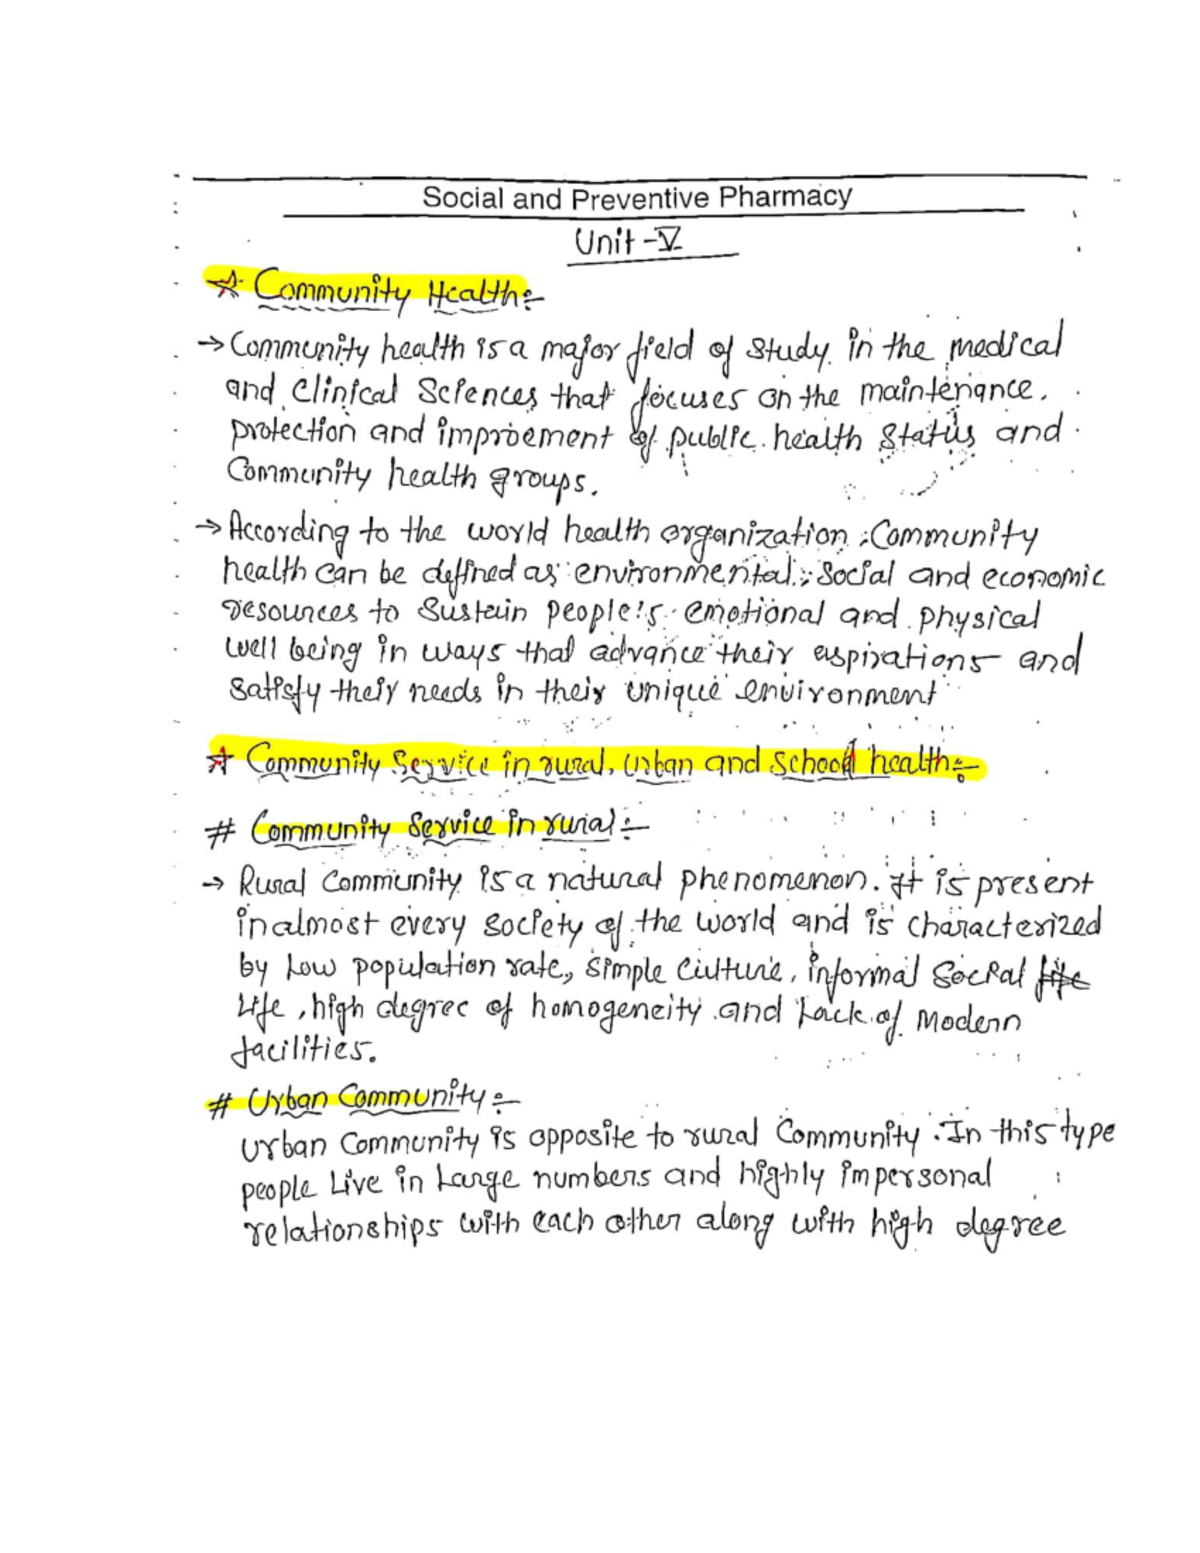 Social and Preventive Pharmacy
Unit-V
☆ Community Health:-
→ Community health is a major field of study in the medical
and clinical Sciences that focuses on the maintenance,
protection and improement of public health status and
Community health groups.
→ According to the world health organization, Community
health can be defined as environmental, social and economic
resources to Sustain people's emotional and physical
well being in ways that advance their aspirations and
satisfy their needs in their unique environment
☆ Community Service in rural, Urban and School health:-
# Community Service in rural:-
→ Rural Community is a natural phenomenon. It is present
in almost every society of the world and is characterized
by Low population rate, simple culture, informal Social life
Life, high degree of homogeneity and Lack of Modern
facilities.
# Urban Community:-
Urban Community is opposite to rural Community. In this type
people Live in Large numbers and highly impersonal
relationships with each other along with high degree